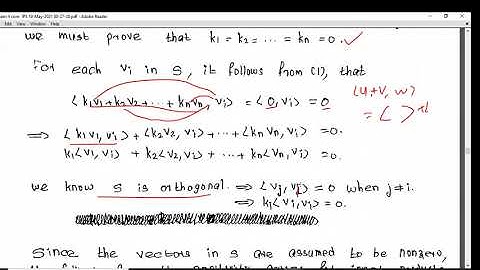 we must prove that k₁ = k₂ = ... = kn = 0. ✓
For each vi in S, it follows from (1), that
⟨k₁v₁+k₂v₂+...+knvn, vi⟩ = ⟨0, vi⟩ = 0
⟨u+v, w⟩
= ⟨ ⟩+⟨
⇒ ⟨k₁v₁, vi⟩ + ⟨k₂v₂, vi⟩ + ... + ⟨knvn, vi⟩ = 0.
k₁⟨v₁, vi⟩ + k₂⟨v₂, vi⟩ + ... + kn⟨vn, vi⟩ = 0.
we know S is orthogonal. ⇒ ⟨vj, vi⟩ = 0 when j≠i.
⇒ ki⟨vi, vi⟩ = 0.
Since the vectors in S are assumed to be nonzero,